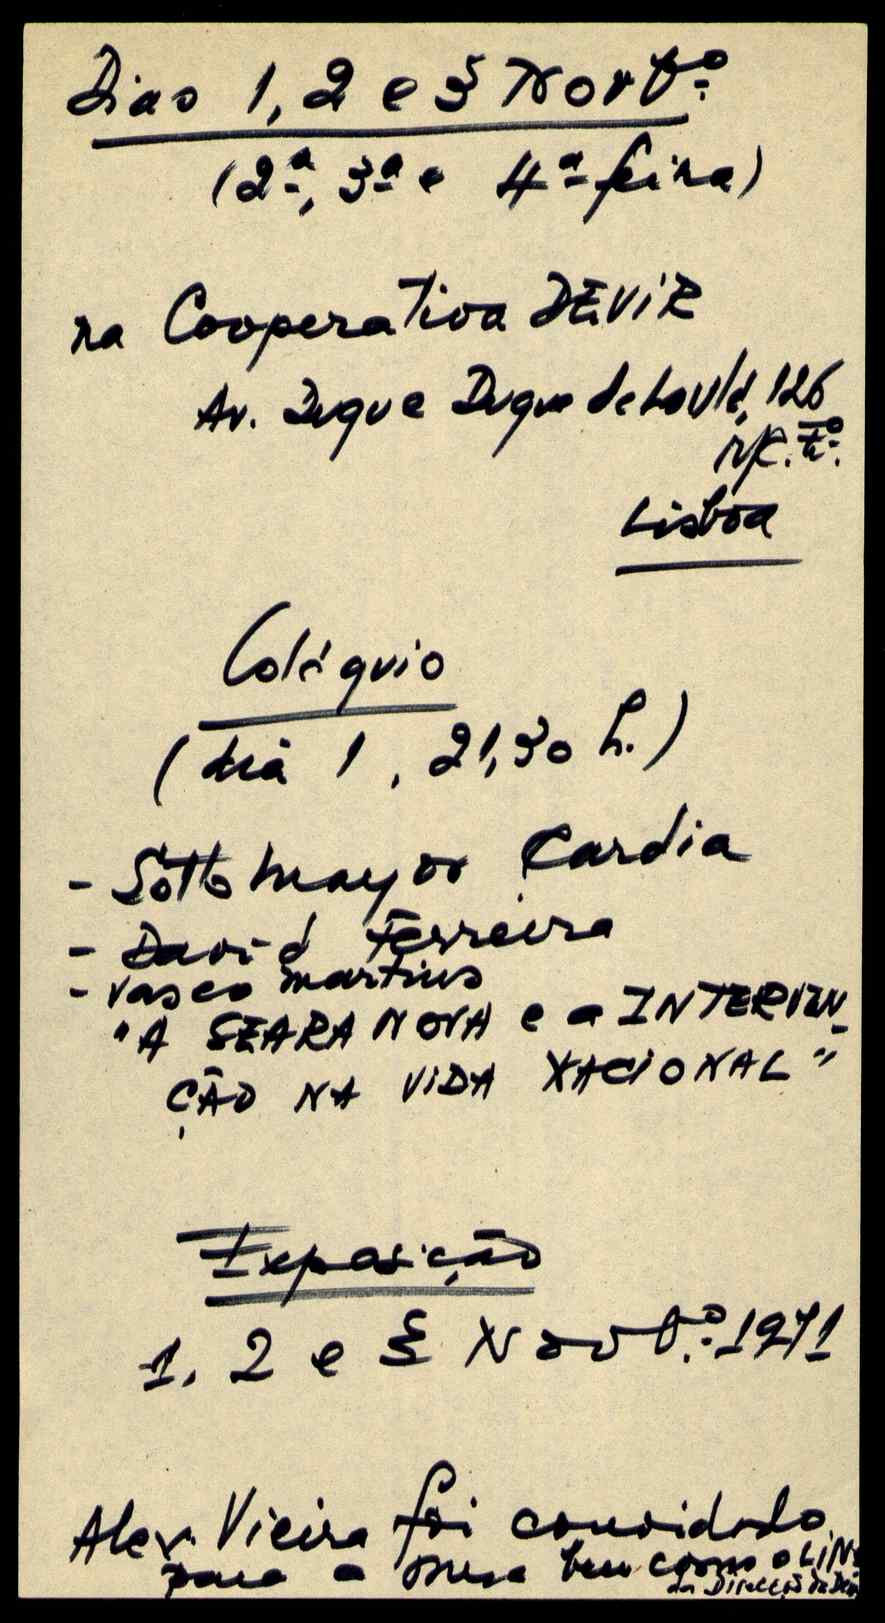 Dias 1, 2 e 3 Novbº.
(2ª, 3ª e 4ª feira)
na Cooperativa DEVIR
Av. Duque Duque de Loulé, 126
r/c. tº.
Lisboa
Colóquio
(dia 1, 21,30 h.)
- Sottomayor Cardia
- David Ferreira
- Vasco Martins
"A SEARA NOVA e a INTERVEN-
ÇÃO NA VIDA NACIONAL"
Exposição
1, 2 e 3 Novbº. 1971
Alex. Vieira foi convidado
para a mesa bem como o LINO
da Direcção da